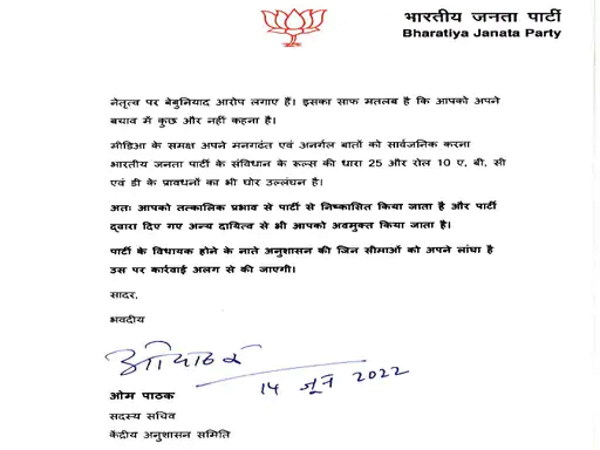 भारतीय जनता पार्टी
Bharatiya Janata Party
नेतृत्व पर बेबुनियाद आरोप लगाए हैं। इसका साफ मतलब है कि आपको अपने
बचाव में कुछ और नहीं कहना है।
मीडिआ के समक्ष अपने मनगदंत एवं अनर्गल बातों को सार्वजनिक करना
भारतीय जनता पार्टी के संविधान के रूल्स की धारा 25 और रोल 10 ए, बी, सी
एवं डी के प्रावधनों का भी घोर उल्लंघन है।
अतः आपको तत्कालिक प्रभाव से पार्टी से निष्कासित किया जाता है और पार्टी
द्वारा दिए गए अन्य दायित्व से भी आपको अवमुक्त किया जाता है।
पार्टी के विधायक होने के नाते अनुशासन की जिन सीमाओं को अपने लांघा है
उस पर कार्रवाई अलग से की जाएगी।
सादर,
भवदीय
14 जून 2022
ओम पाठक
सदस्य सचिव
केंद्रीय अनुशासन समिति